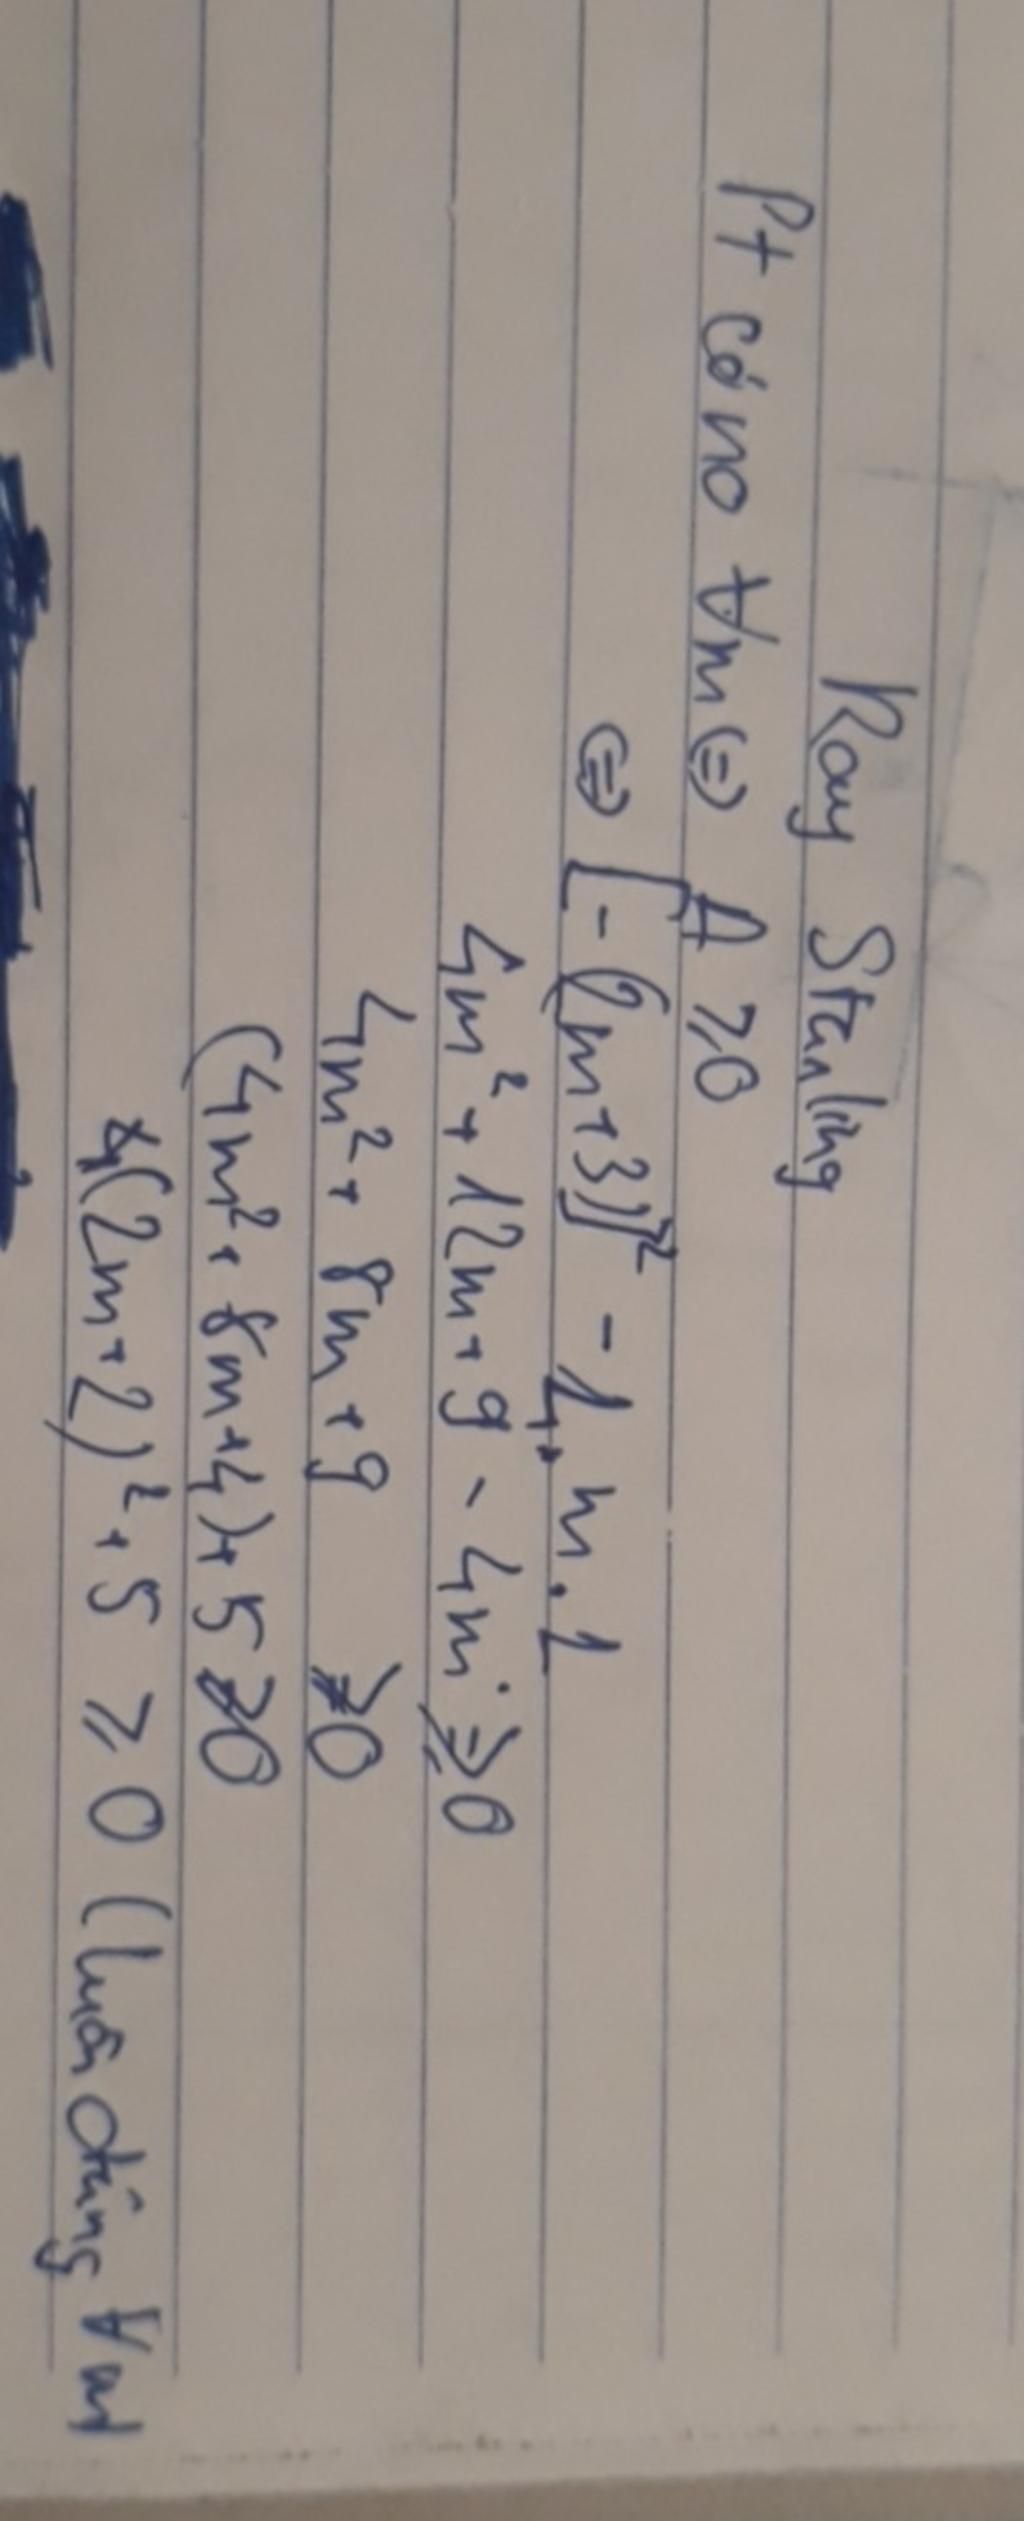 Ray Stanling
Pt có no ∀m ⇔ Δ ≥ 0
⇔ [-(2m+3)]² - 4.m.1
4m² + 12m + 9 - 4m ≥ 0
4m² + 8m + 9 ≥ 0
(4m² + 8m + 4) + 5 ≥ 0
(2m + 2)² + 5 ≥ 0 (luôn đúng ∀m)